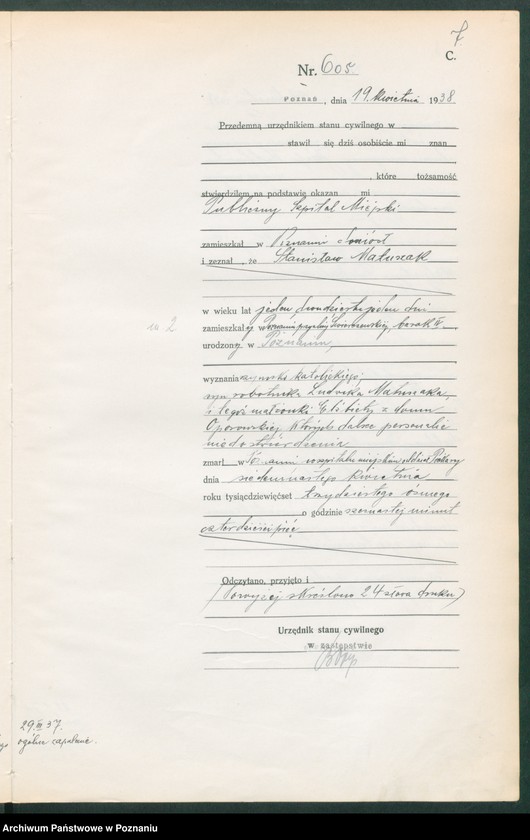 7
C.
Nr. 605.
POZNAŃ, dnia 19. kwietnia 1938
Przedemną urzędnikiem stanu cywilnego w
stawił się dziś osobiście mi znan
, które tożsamość
stwierdziłem na podstawie okazan mi
Publiczny Szpital Miejski
zamieszkał w Poznaniu doniósł
i zeznał, że Stanisław Matuszak
w wieku lat jeden dni
zamieszkały w barak
urodzony w Poznaniu,
wyznania rzymsko katolickiego,
syn robotnika Ludwika Matuszaka,
i tegoż małżonki Elżbiety z domu
Oporowskiej, których dalsze personalia
nie do stwierdzenia
zmarł w Poznaniu w szpitalu miejskim
dnia siedemnastego kwietnia
roku tysiącdziewięćset trzydziestego ósmego
o godzinie szesnastej minut
czterdzieści pięć.
Odczytano, przyjęto i
(Powyżej skreślono 24 słowa druku)
Urzędnik stanu cywilnego
w zastępstwie
29.III 37.
ogólne
Archiwum Państwowe w Poznaniu